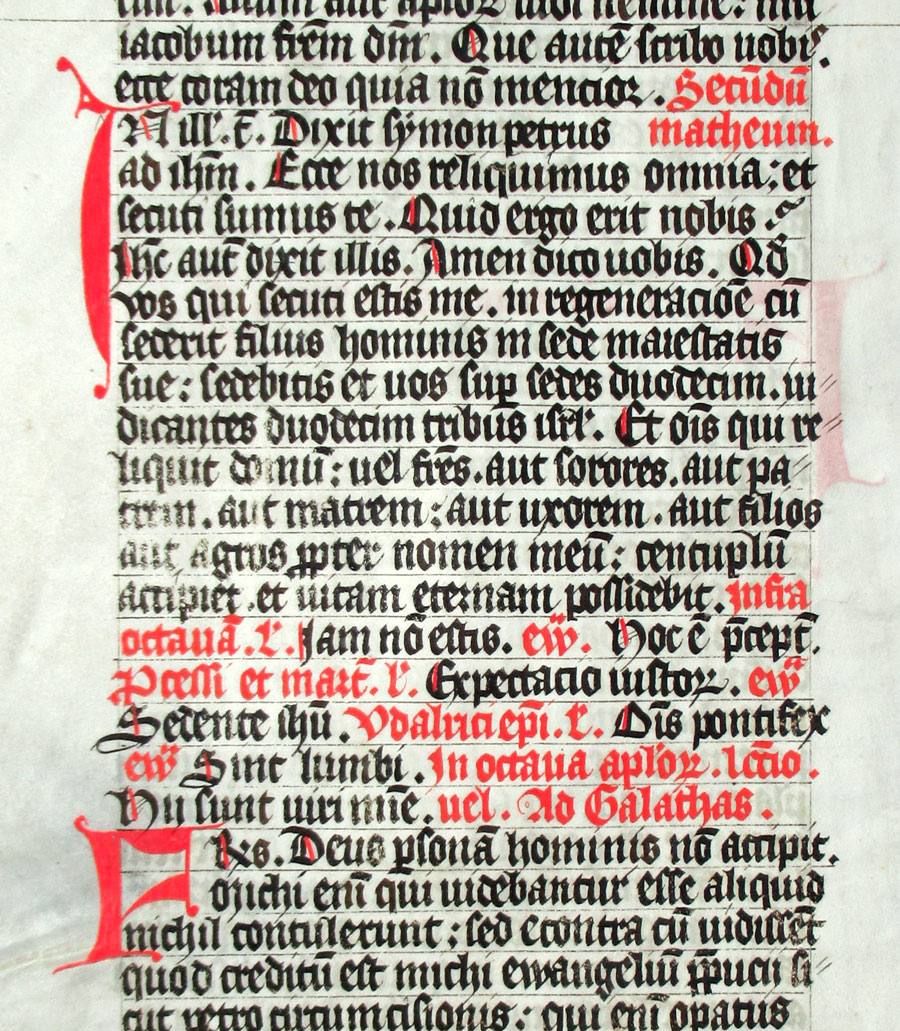 aut aploꝝ
iacobum frēm dn̄i. Que autē scribo uobis
ecce coram deo quia nō mencior. Secūdū
IN ill'. t̄. Dixit symon petrus matheum.
ad ihm̄. Ecce nos reliquimus omnia: et
secuti sumus te. Quid ergo erit nobis.
Ihc̄ aut̄ dixit illis. Amen dico uobis. Qd̄
vos qui secuti estis me. in regeneracōe cū
sederit filius hominis in sede maiestatis
sue: sedebitis et uos sup sedes duodecim. iu
dicantes duodecim tribus isrl'. Et oīs qui re
liquit domū: uel frēs. aut sorores. aut pa
trem. aut matrem: aut uxorem. aut filios
aut agros ꝓpter nomen meū: centuplū
accipiet. et uitam eternam possidebit. Infra
octauā. l'. Jam nō estis. ew̄. Hoc ē p̄cept̄.
Pcessi et mart̄. l'. Expectacio iustoꝝ. ew̄
Sedente ihū. Vdalrici epī. l'. Dīs pontifex
ew̄ Sint lumbi. In octaua aploꝝ. lcc̄io.
Hii sunt uiri mīe. uel. Ad Galathas.
FRs. Deus psonā hominis nō accipit.
Michi enī qui uidebantur esse aliquid
nichil contulerunt: sed econtra cū uidissēt
quod creditū est michi ewangeliū p̄pucii si
cut petro circumcisionis: qui enī opatus